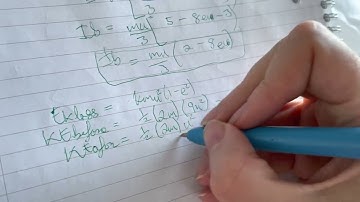 Ib = mu/3 (5 - 8e - 3)
Ib = mu/3 (2 - 8e)
KE loss = kmu²(1-e²)
KE before = 1/2 (2m)(9u²)
KE after = 1/2 (2m)